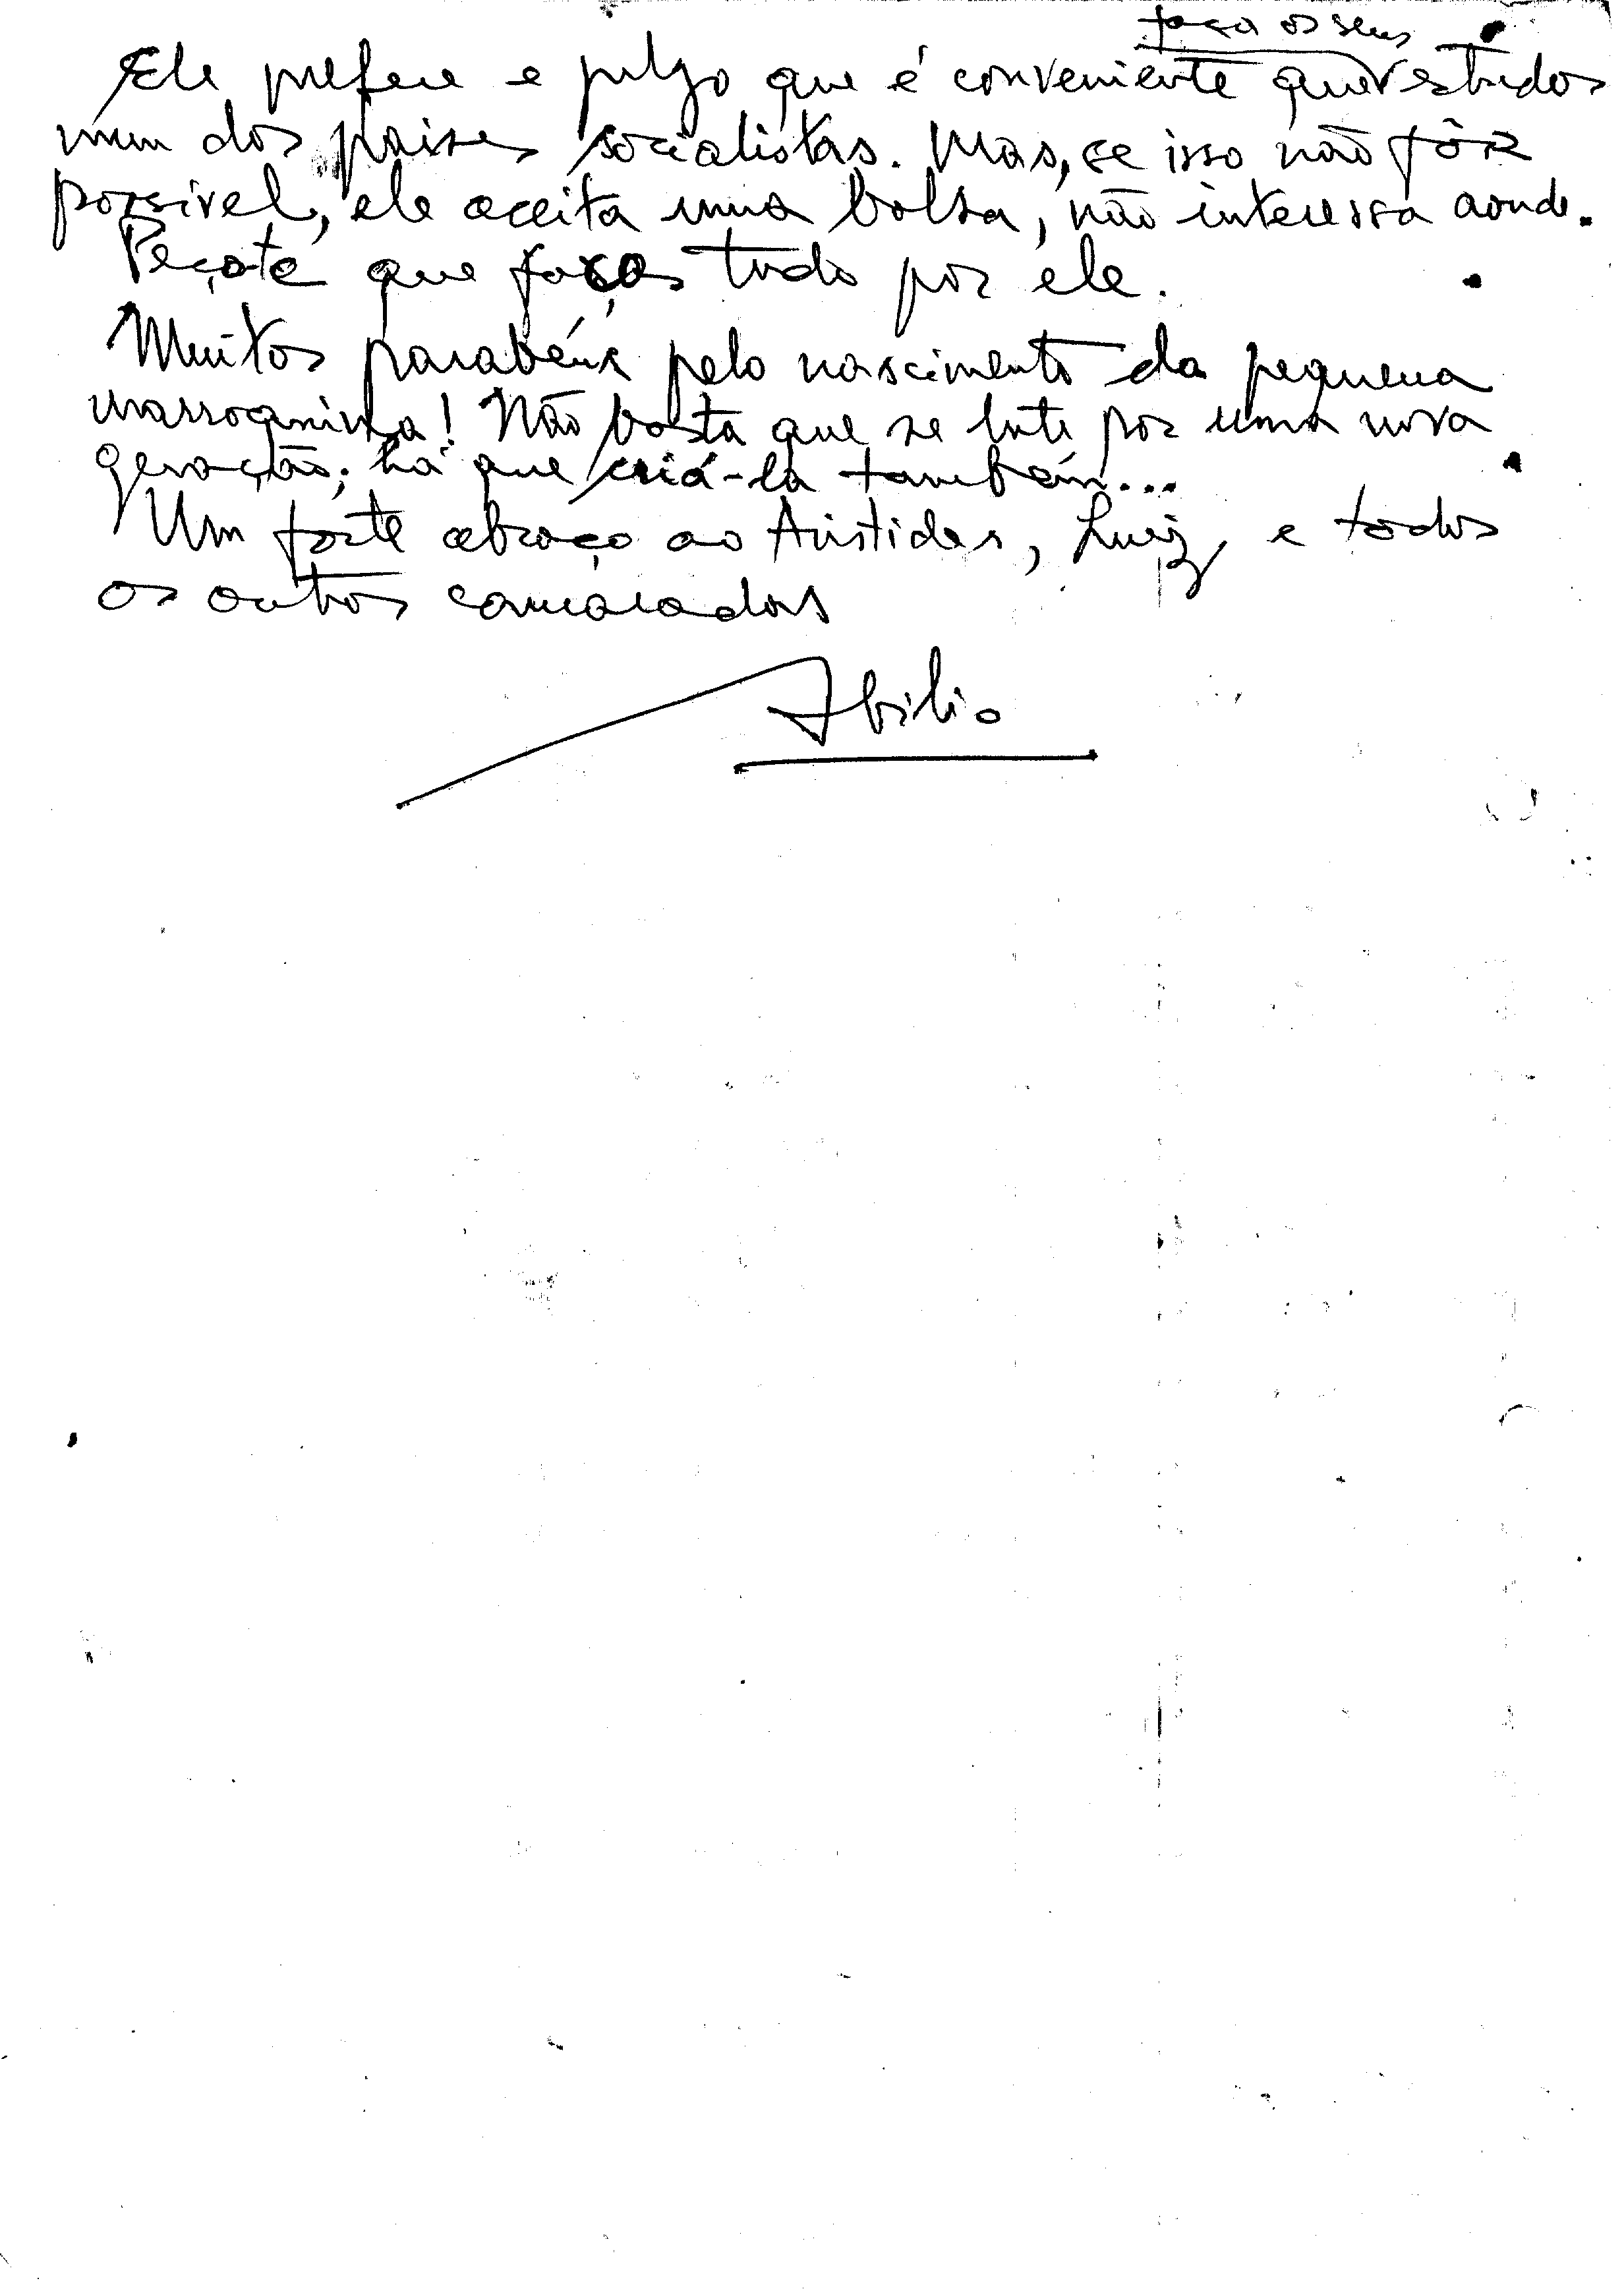 faça os seus
Ele prefere e julgo que é conveniente que estudos
num dos paises socialistas. Mas, se isso não fôr
possivel, ele aceita uma bolsa, não interessa aonde.
Peço-te que faças tudo por ele.
Muitos parabéns pelo nascimento da pequena
marroquina! Não basta que se lute por uma nova
geração; há que criá-la também...
Um forte abraço ao Aristides, Luiz, e todos
os outros camaradas
Abilio